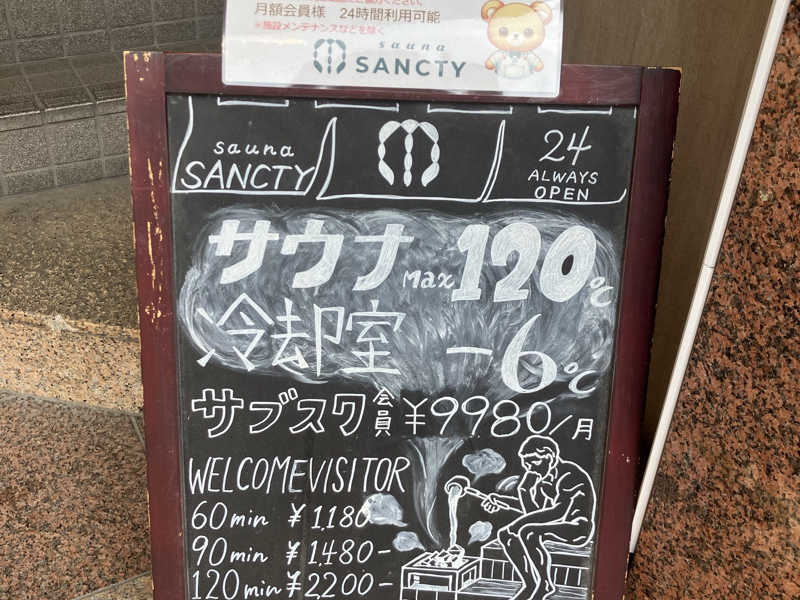 月額会員様 24時間利用可能
※施設メンテナンスなどを除く
sauna
SANCTY
sauna
SANCTY
24
ALWAYS
OPEN
サウナ Max 120℃
冷却室 -6℃
サブスク会員 ¥9980/月
WELCOME VISITOR
60min ¥1,180-
90min ¥1,480-
120min ¥2,200-